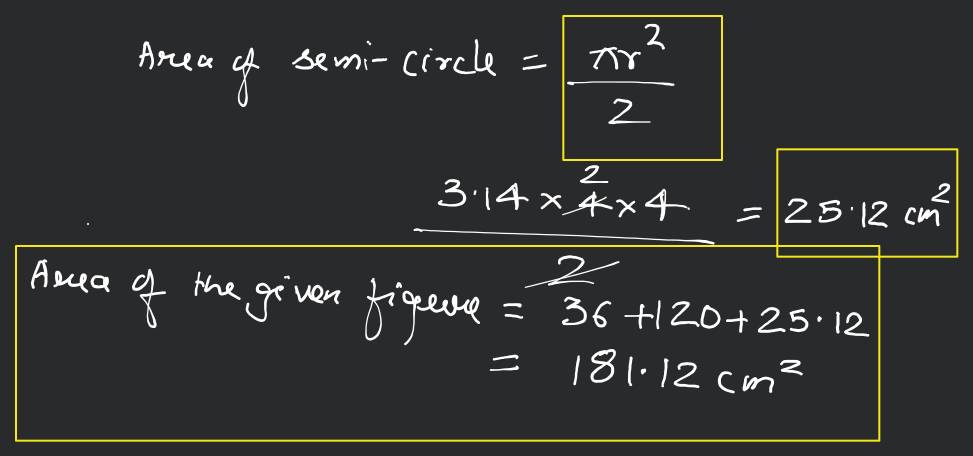 Area of semi-circle = πr²
2
3.14 × 4 × 4 = 25.12 cm²
2
2
Area of the given figure = 36 + 120 + 25.12
= 181.12 cm²